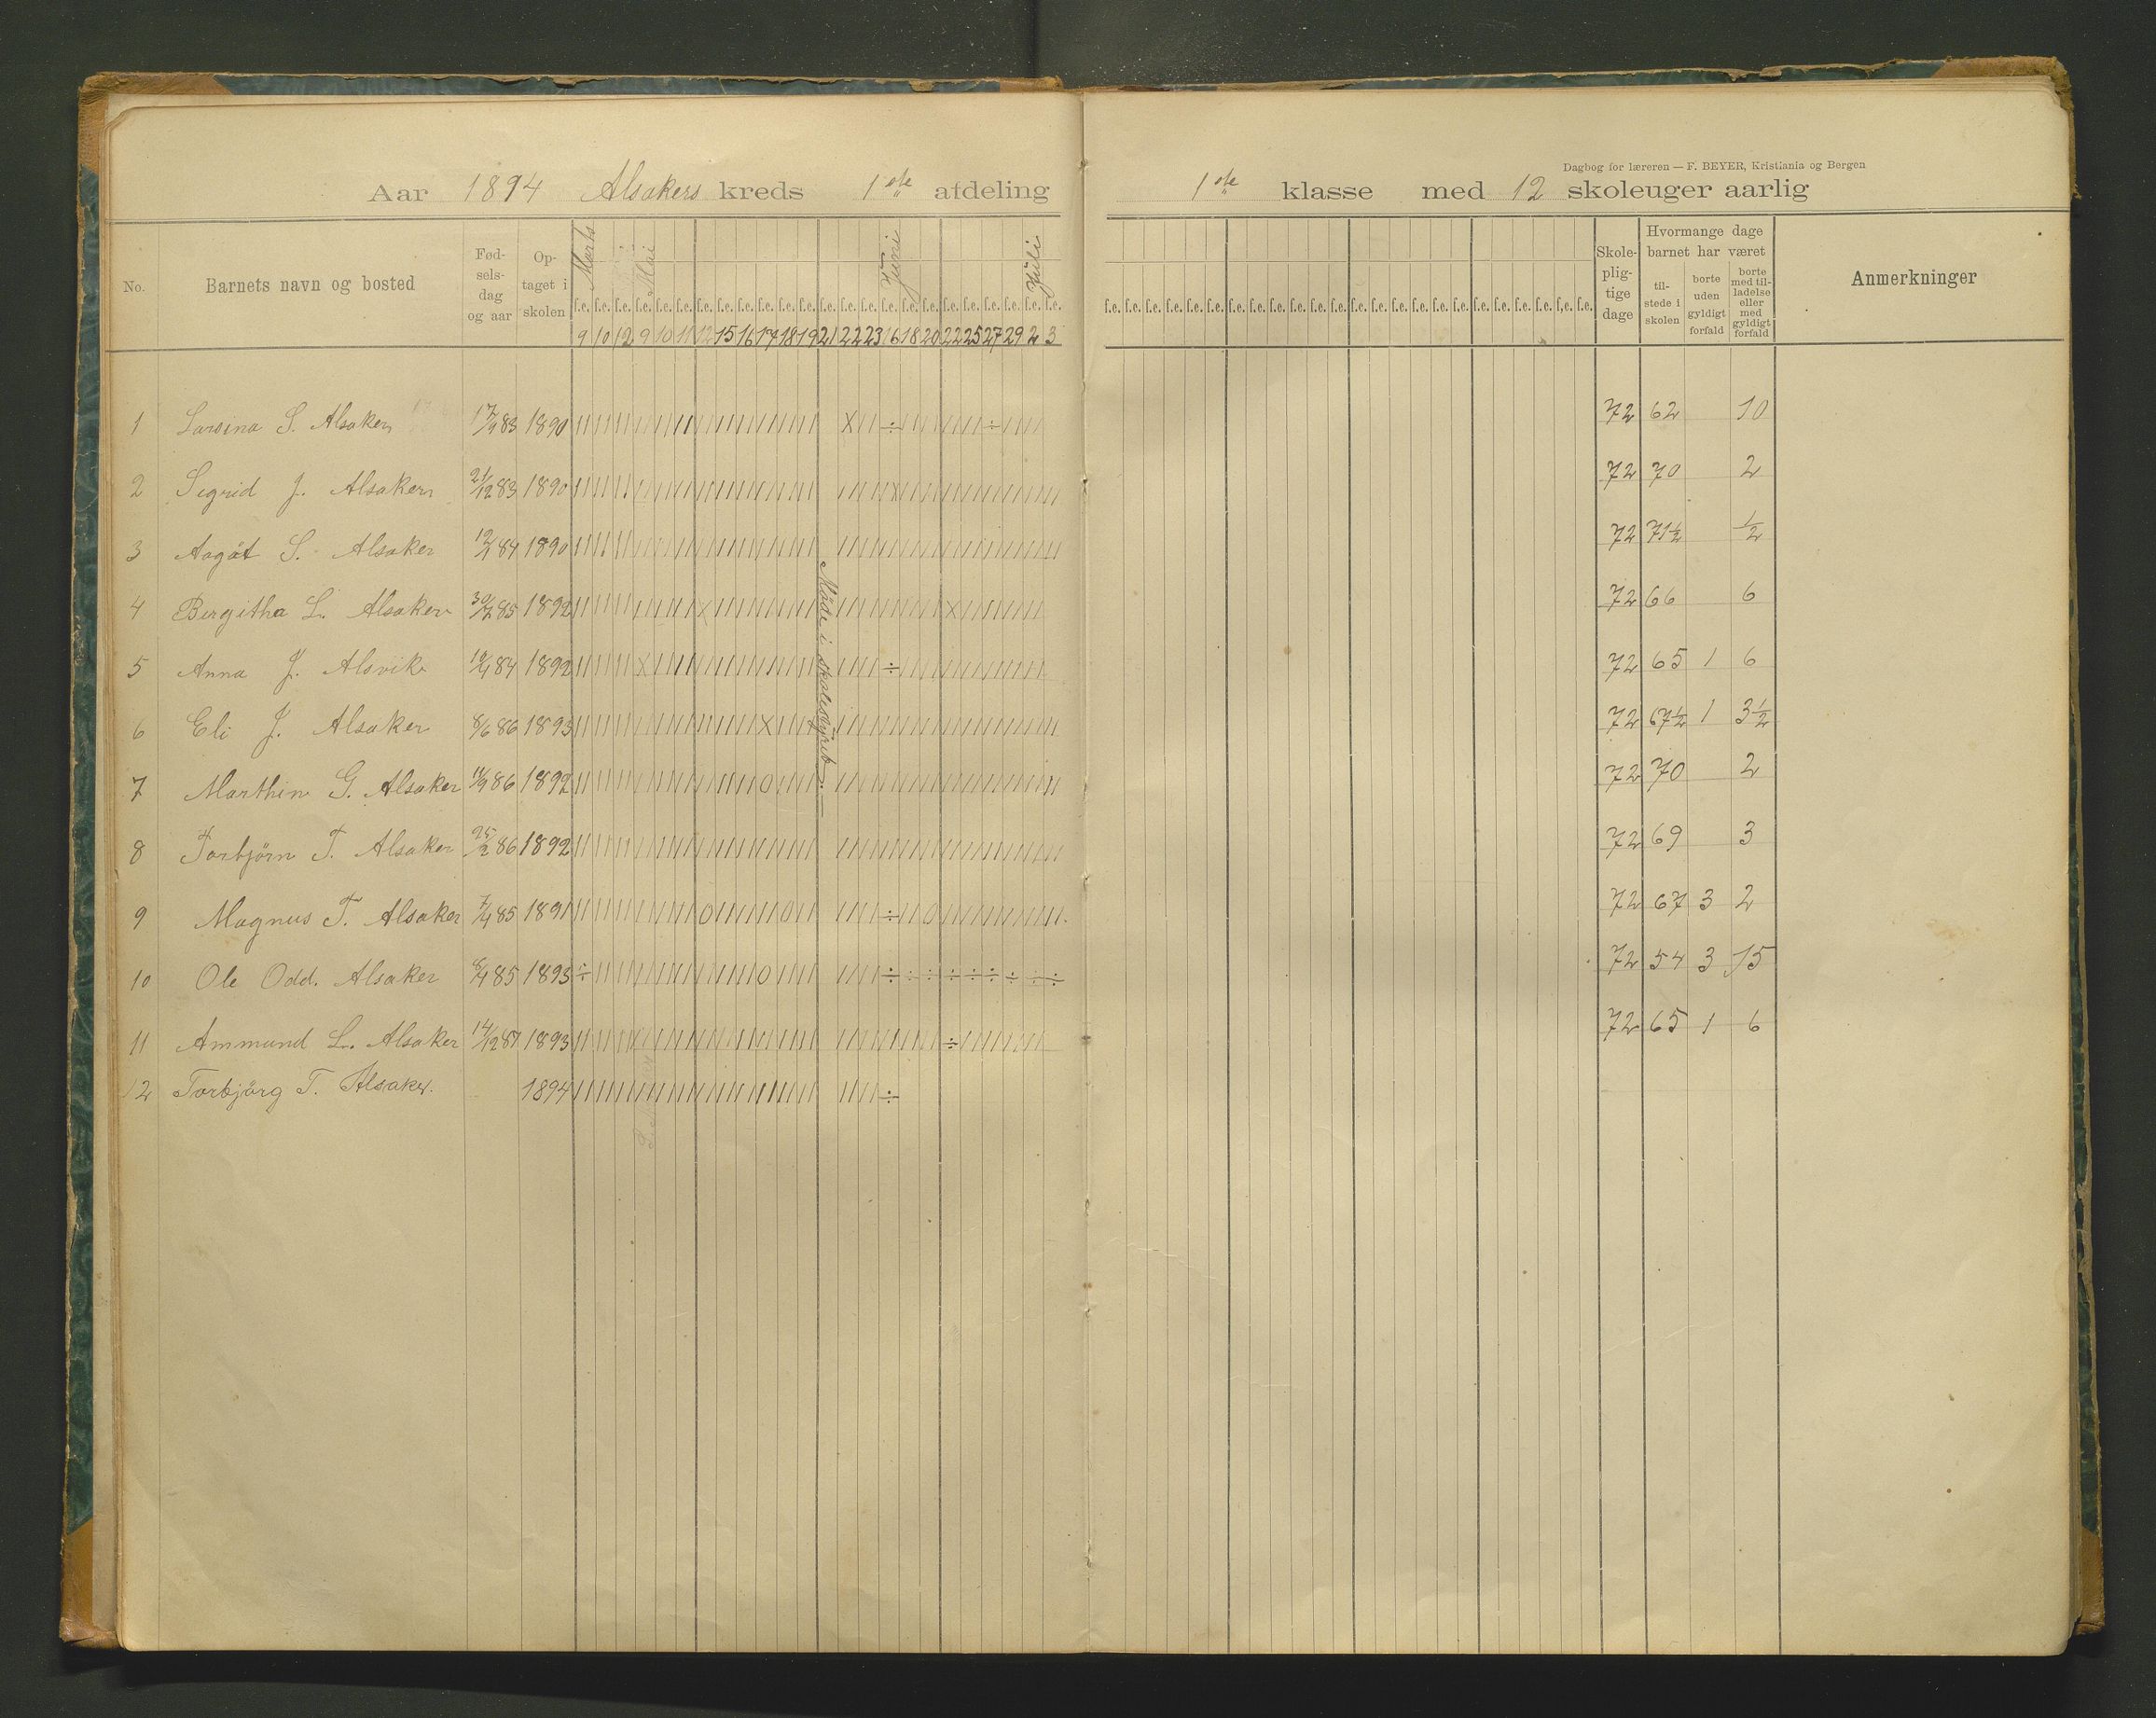 Dagbog for læreren — F. BEYER, Kristiania og Bergen
Aar 1894 Alsakers kreds 1ste afdeling 1ste klasse med 12 skoleuger aarlig
No. Barnets navn og bosted Fødselsdag og aar Optaget i skolen Marts Mai Juni Juli Skolepligtige dage Hvormange dage barnet har været tilstede i skolen borte uden gyldigt forfald borte med tilladelse eller med gyldigt forfald Anmerkninger
f.e. f.e. f.e. f.e. f.e. f.e. f.e. f.e. f.e. f.e. f.e. f.e. f.e. f.e. f.e. f.e. f.e. f.e. f.e. f.e. f.e. f.e. f.e. f.e. f.e. f.e. f.e. f.e. f.e. f.e. f.e. f.e. f.e. f.e. f.e. f.e. f.e. f.e. f.e. f.e. f.e. f.e. f.e. f.e. f.e. f.e. f.e. f.e.
9 10 12 9 10 11 12 15 16 17 18 19 21 22 23 16 18 20 22 25 27 29 2 3
1 Larsina S. Alsaker 17/9 83 1890 72 62 10
2 Sigrid J. Alsaker 21/12 83 1890 72 70 2
3 Aagåt S. Alsaker 84 1890 72 71½ ½
4 Bergitha L. Alsaker 85 1892 72 66 6
5 Anna J. Alsvik 84 1892 72 65 1 6
6 Eli J. Alsaker 8/6 86 1893 72 67½ 1 3½
7 Marthin G. Alsaker 11/9 86 1892 72 70 2
8 Torbjörn T. Alsaker 25/2 86 1892 72 69 3
9 Magnus T. Alsaker 7/4 85 1891 72 67 3 2
10 Ole Odd. Alsaker 8/4 85 1893 72 54 3 15
11 Ammund L. Alsaker 14/12 87 1893 72 65 1 6
12 Torbjörg T. Alsaker. 1894
Möde i skolestyret.